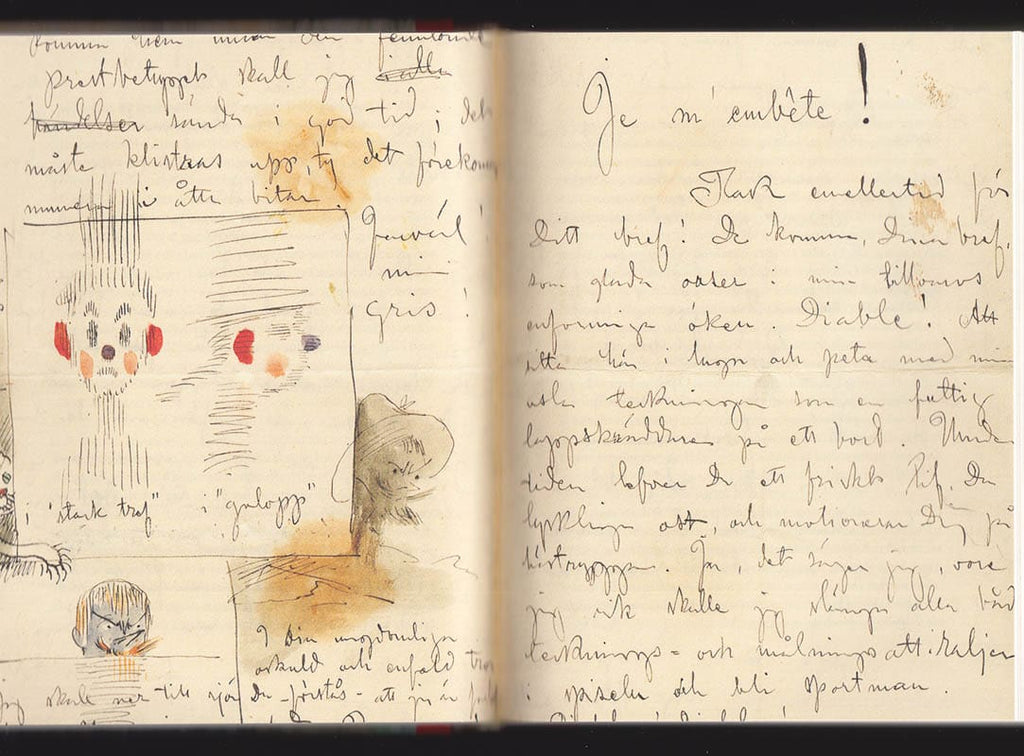 komma hem innan den
prestbetyget skall jag
händelser sända i god tid, det
måste klistras upp, ty det förekom
i åtta bitar
Farväl!
min
gris!
i "stark traf" i "galopp"
I Din ungdomliga
oskuld och enfald tror
Du - förstås - att jag är
jag skulle ner till sjön
Je m'embête!
Tack emellertid för
Ditt bref! De komma, Dina bref,
som glada oaser i min tillvaros
enformiga öken. Diable! Att
sitta här i lugn och peta med mina
usla teckningar som en fattig
lappskräddare på ett bord. Under
tiden lefver Du ett friskt lif, Du
lycklige ost, och motionerar Dig på
hästryggen. Ja, det säger jag, vore
jag rik skulle jag slänga alla
tecknings- och målningsattiraljer
i spiseln och bli sportman.